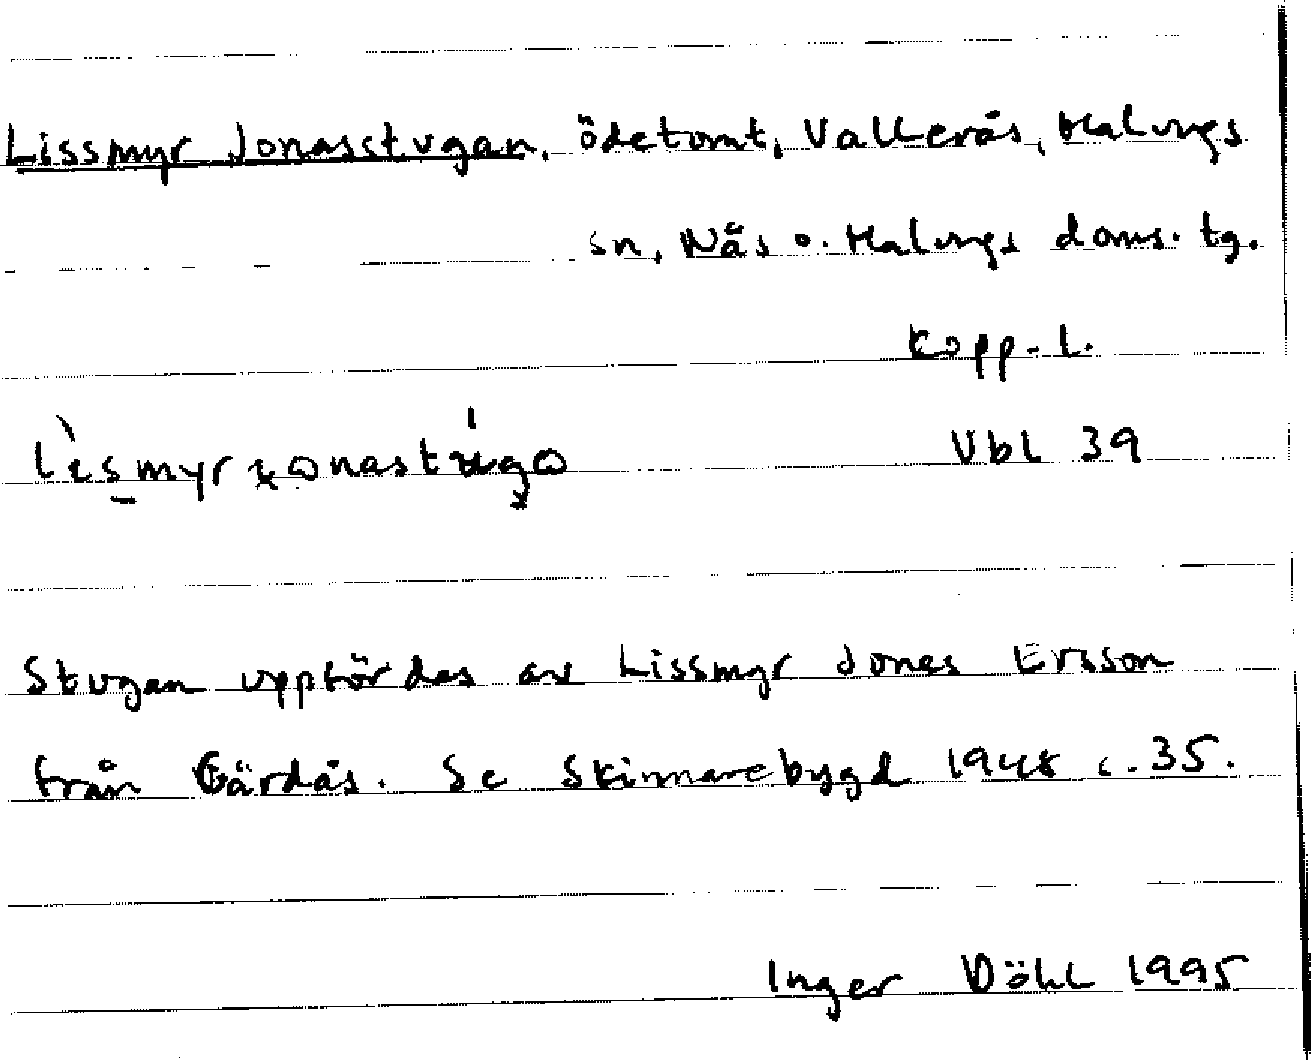 Lissmyr Jonasstugan, ödetomt, Vallerås, Malungs
sn, Nås o. Malungs doms. tg.
Kopp. l.
Vbl 39
Stugan uppfördes av Lissmyr Jones Ersson
från Gärdås. Se Skinnarebygd 1948 s. 35.
Inger Döhl 1995